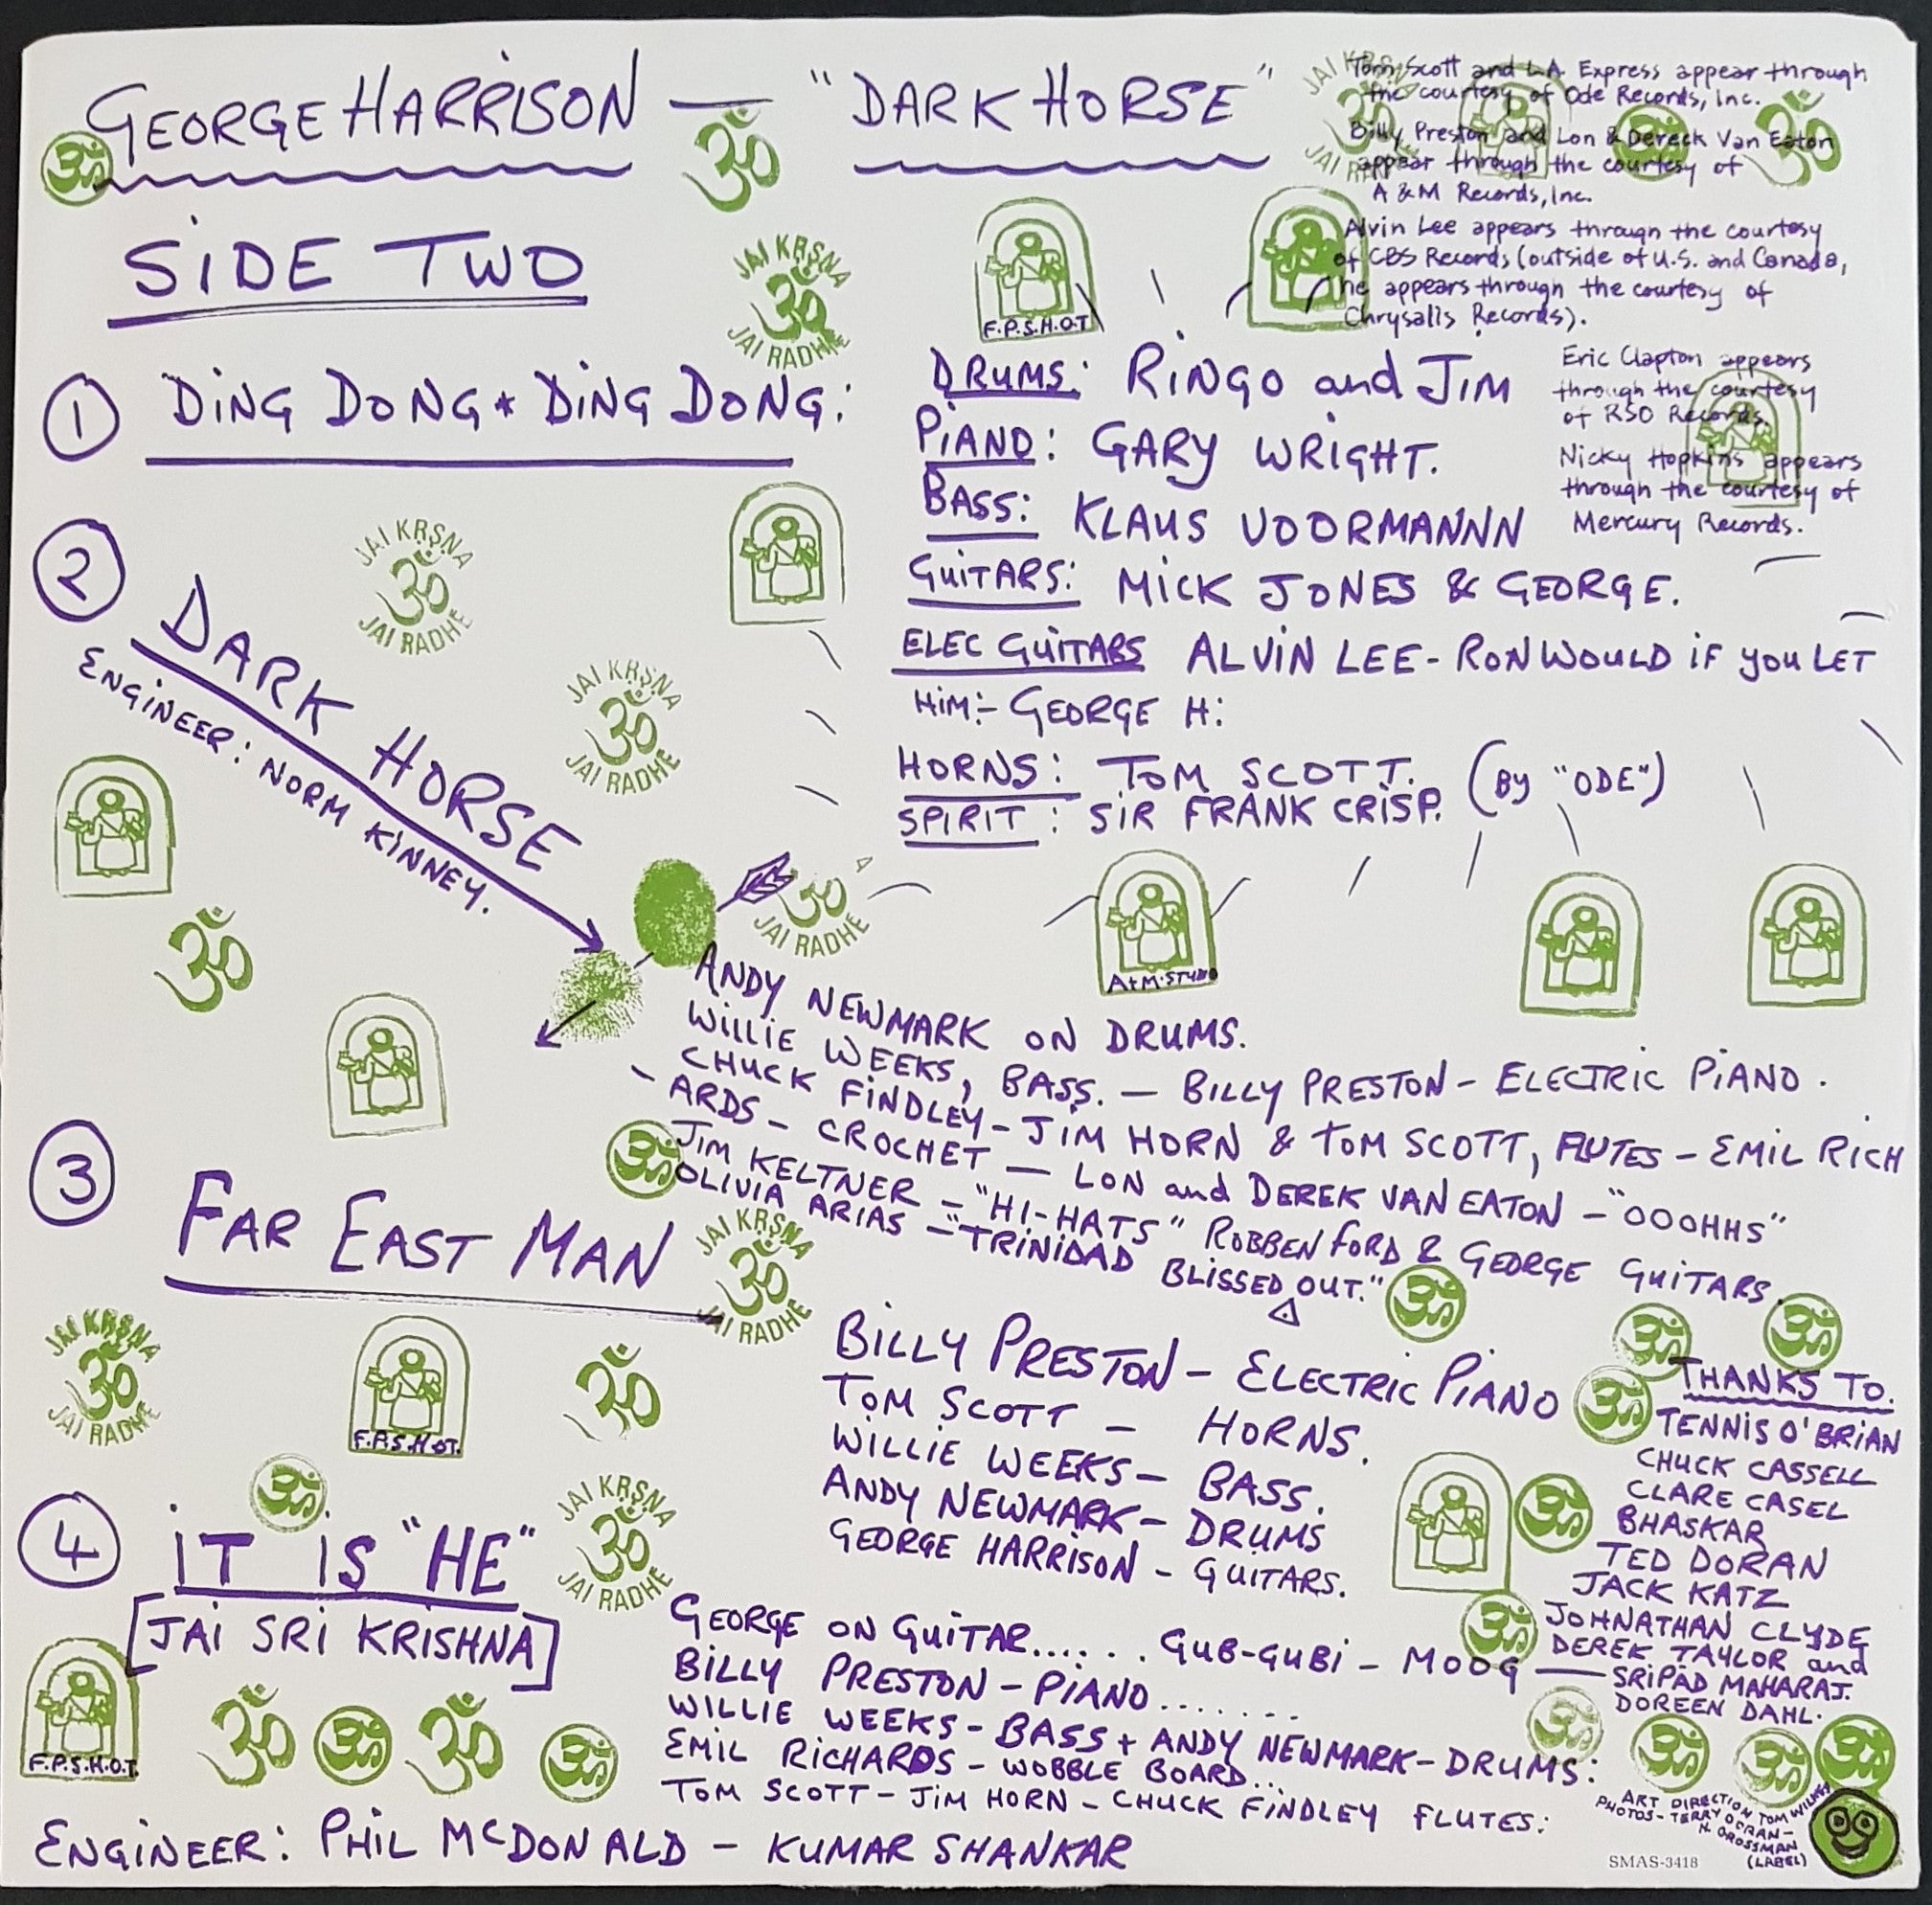 GEORGE HARRISON — "DARK HORSE"
SIDE TWO
Tom Scott and L.A. Express appear through
the courtesy of Ode Records, Inc.
Billy Preston and Lon & Dereck Van Eaton
appear through the courtesy of
A & M Records, Inc.
Alvin Lee appears through the courtesy
of CBS Records (outside of U.S. and Canada,
he appears through the courtesy of
Chrysalis Records).
Eric Clapton appears
through the courtesy
of RSO Records.
Nicky Hopkins appears
through the courtesy of
Mercury Records.
ॐ
JAI KRṢNA
ॐ
JAI RADHE
F.P.S.H.O.T
① DING DONG * DING DONG:
DRUMS: RINGO and JIM
PIANO: GARY WRIGHT.
BASS: KLAUS VOORMANNN
GUITARS: MICK JONES & GEORGE.
ELEC GUITARS ALVIN LEE - RON WOULD IF YOU LET
HIM:- GEORGE H:
HORNS: TOM SCOTT. (BY "ODE")
SPIRIT: SIR FRANK CRISP.
② DARK HORSE
ENGINEER: NORM KINNEY.
JAI KRṢNA
ॐ
JAI RADHE
JAI KRṢNA
ॐ
JAI RADHE
ॐ
JAI RADHE
A+M·STUDIO
ANDY NEWMARK ON DRUMS.
WILLIE WEEKS, BASS. — BILLY PRESTON - ELECTRIC PIANO.
CHUCK FINDLEY - JIM HORN & TOM SCOTT, FLUTES - EMIL RICH
- ARDS - CROCHET — LON and DEREK VAN EATON - "OOOHHS"
JIM KELTNER - "HI-HATS" ROBBEN FORD & GEORGE GUITARS.
OLIVIA ARIAS - "TRINIDAD BLISSED OUT."
③ FAR EAST MAN
JAI KRṢNA
ॐ
JAI RADHE
BILLY PRESTON - ELECTRIC PIANO
TOM SCOTT — HORNS.
WILLIE WEEKS - BASS.
ANDY NEWMARK - DRUMS
GEORGE HARRISON - GUITARS.
JAI KRṢNA
ॐ
JAI RADHE
F.P.S.H.O.T.
ॐ
THANKS TO.
TENNIS O'BRIAN
CHUCK CASSELL
CLARE CASEL
BHASKAR
TED DORAN
JACK KATZ
JOHNATHAN CLYDE
DEREK TAYLOR and
SRIPAD MAHARAJ.
DOREEN DAHL.
④ IT IS "HE"
[JAI SRI KRISHNA]
JAI KRṢNA
ॐ
JAI RADHE
GEORGE ON GUITAR...... GUB-GUBI - MOOG —
BILLY PRESTON - PIANO.......
WILLIE WEEKS - BASS + ANDY NEWMARK - DRUMS:
EMIL RICHARDS - WOBBLE BOARD...
TOM SCOTT - JIM HORN - CHUCK FINDLEY FLUTES:
F.P.S.H.O.T.
ॐ ॐ ॐ ॐ
ENGINEER: PHIL McDONALD - KUMAR SHANKAR
ART DIRECTION TOM WILKES
PHOTOS - TERRY DORAN -
N. GROSSMAN
(LABEL)
SMAS-3418